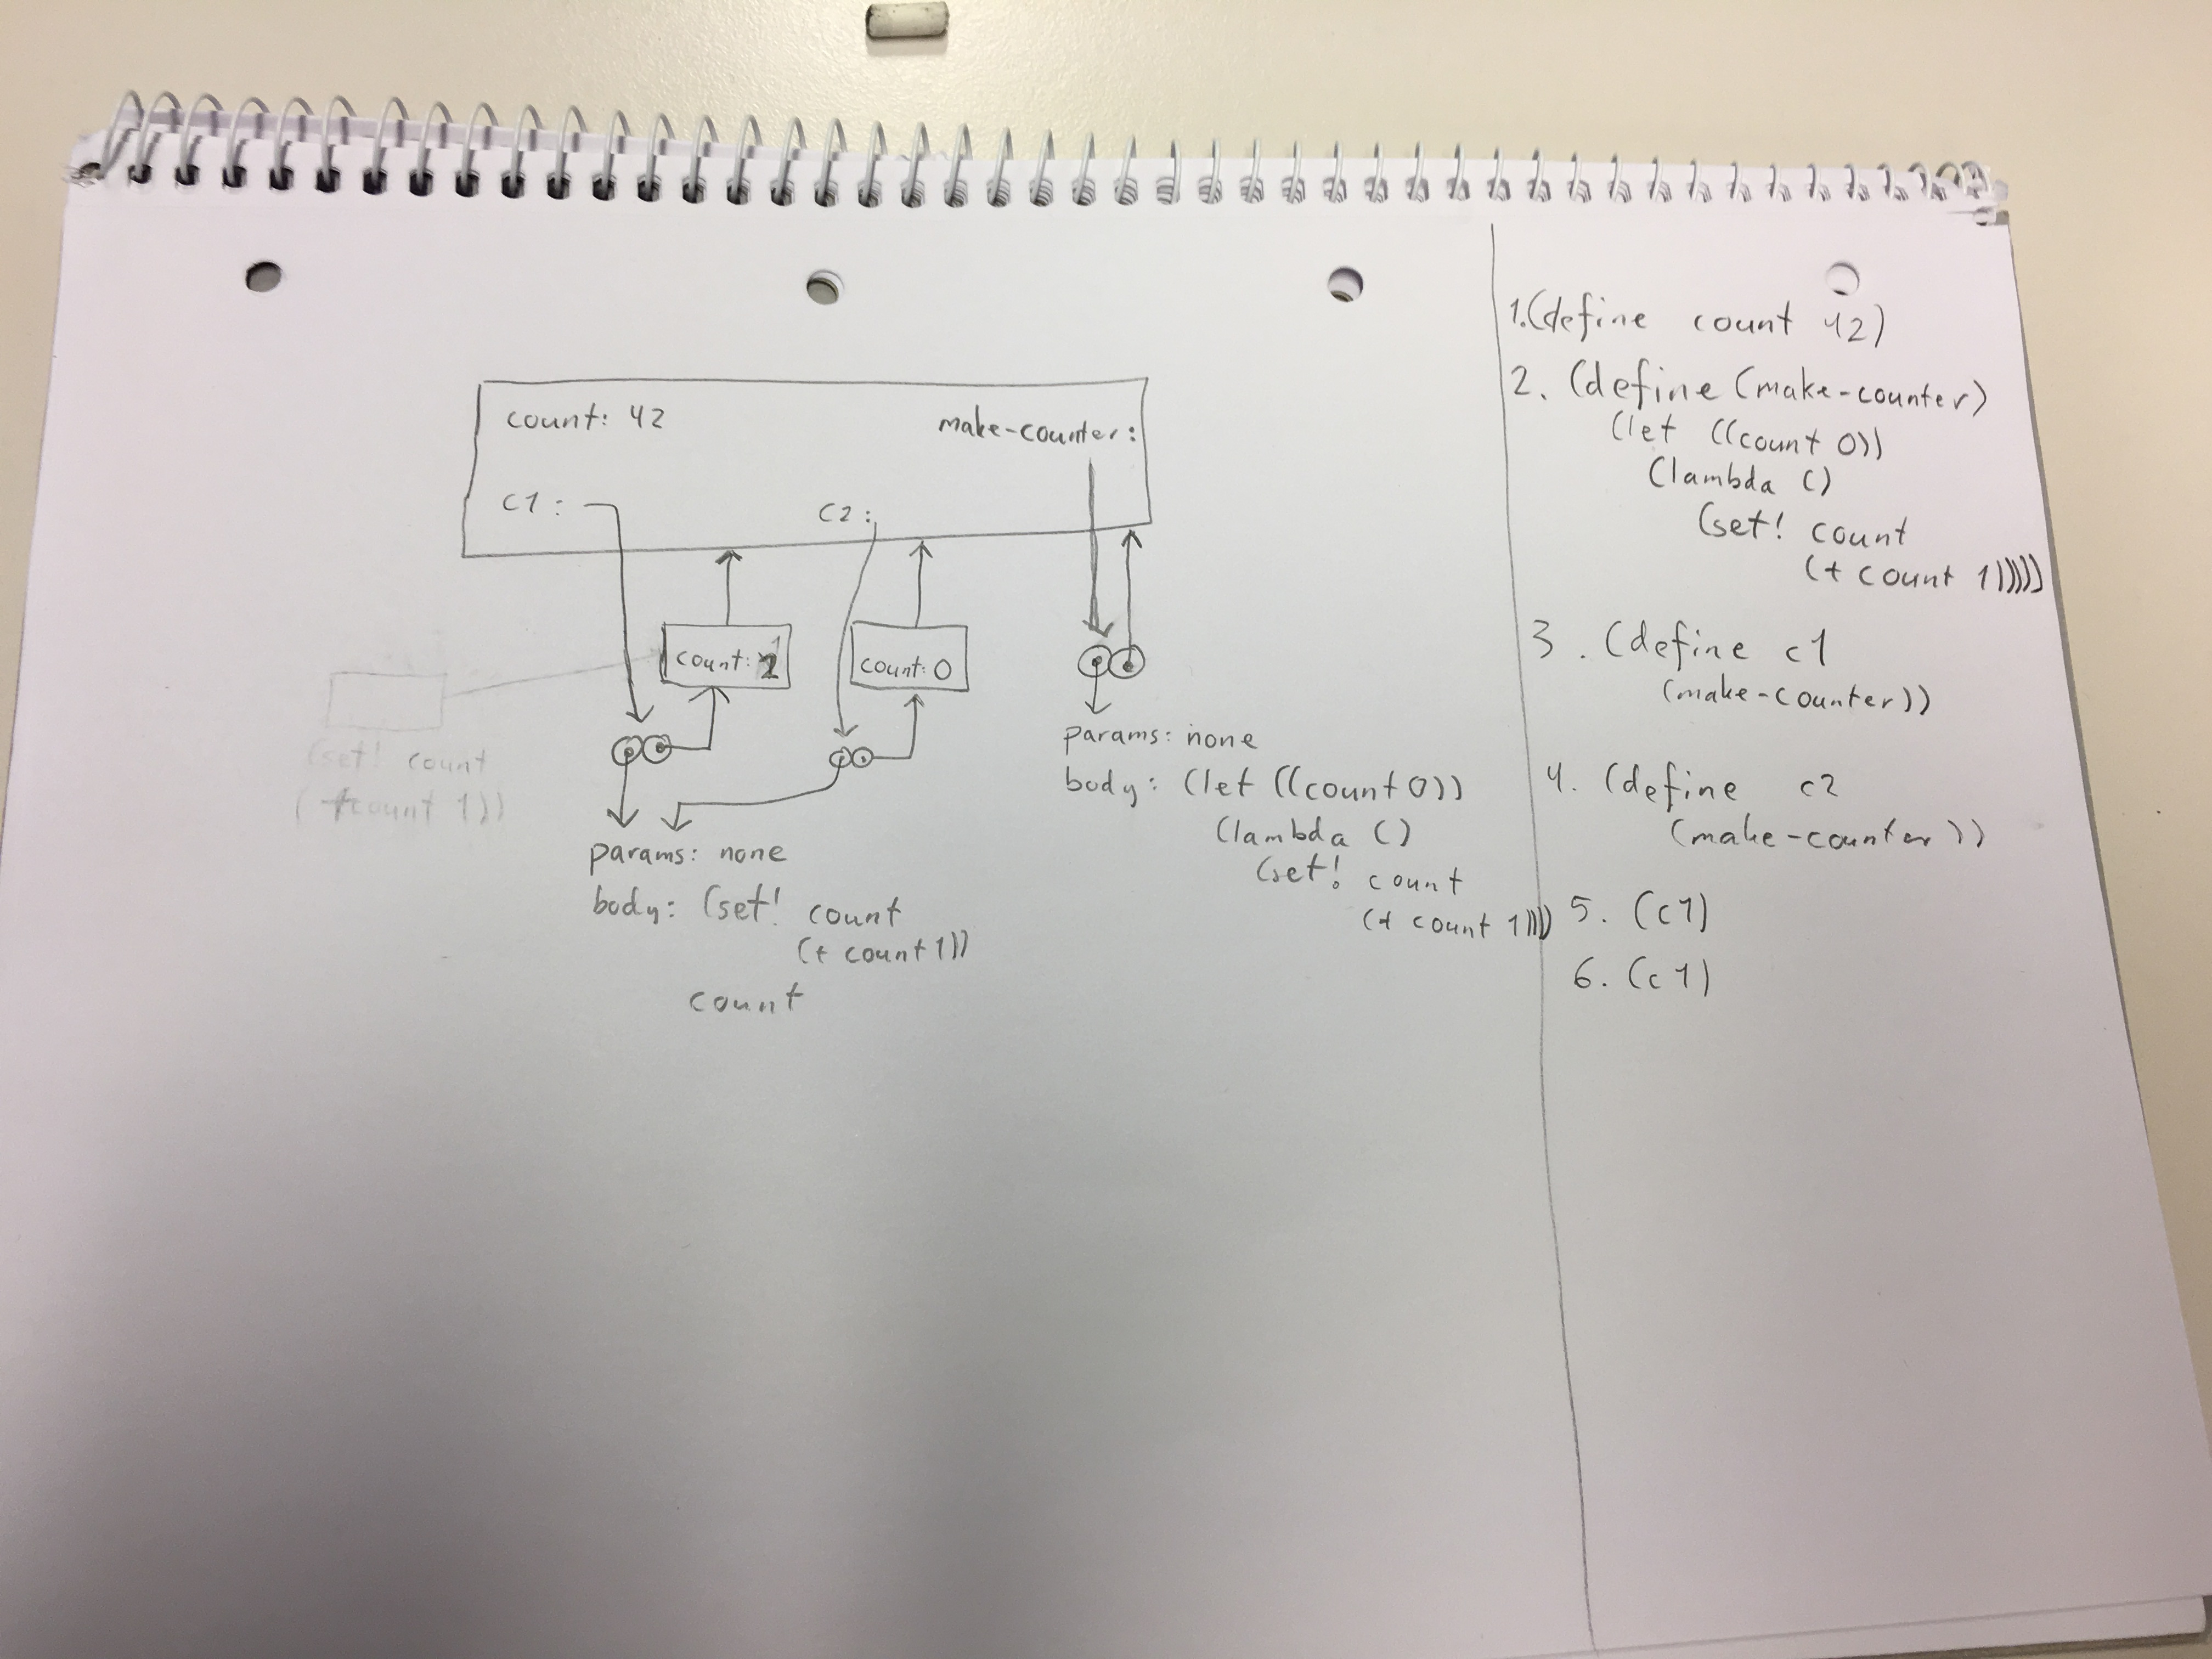 count: 42
make-counter:
c1 :
c2 :
count: 2
count: 0
(set! count
(+count 1))
params: none
body: (set! count
(+ count 1))
count
params: none
body: (let ((count 0))
(lambda ()
(set! count
(+ count 1))))
1.(define count 42)
2. (define (make-counter)
(let ((count 0))
(lambda ()
(set! count
(+ count 1)))))
3. (define c1
(make-counter))
4. (define c2
(make-counter))
5. (c1)
6. (c1)